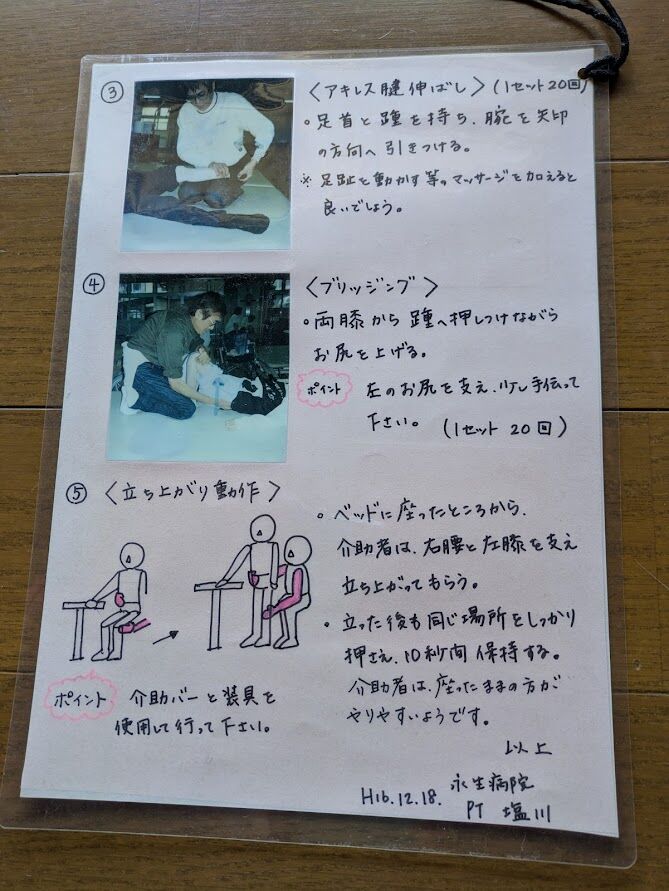 ③ 〈アキレス腱伸ばし〉(1セット20回)
。足首と踵を持ち、腕を矢印
の方向へ引きつける。
※ 足趾を動かす等のマッサージを加えると
良いでしょう。
④ 〈ブリッジング〉
。両膝から踵へ押しつけながら
お尻を上げる。
ポイント 左のお尻を支え、少し手伝って
下さい。(1セット 20回)
⑤ 〈立ち上がり動作〉
。ベッドに座ったところから、
介助者は、右腰と左膝を支え
立ち上がってもらう。
。立った後も同じ場所をしっかり
押さえ、10秒間保持する。
介助者は、座ったままの方が
やりやすいようです。
ポイント 介助バーと装具を
使用して行って下さい。
以上
H16.12.18. 永生病院
PT 塩川